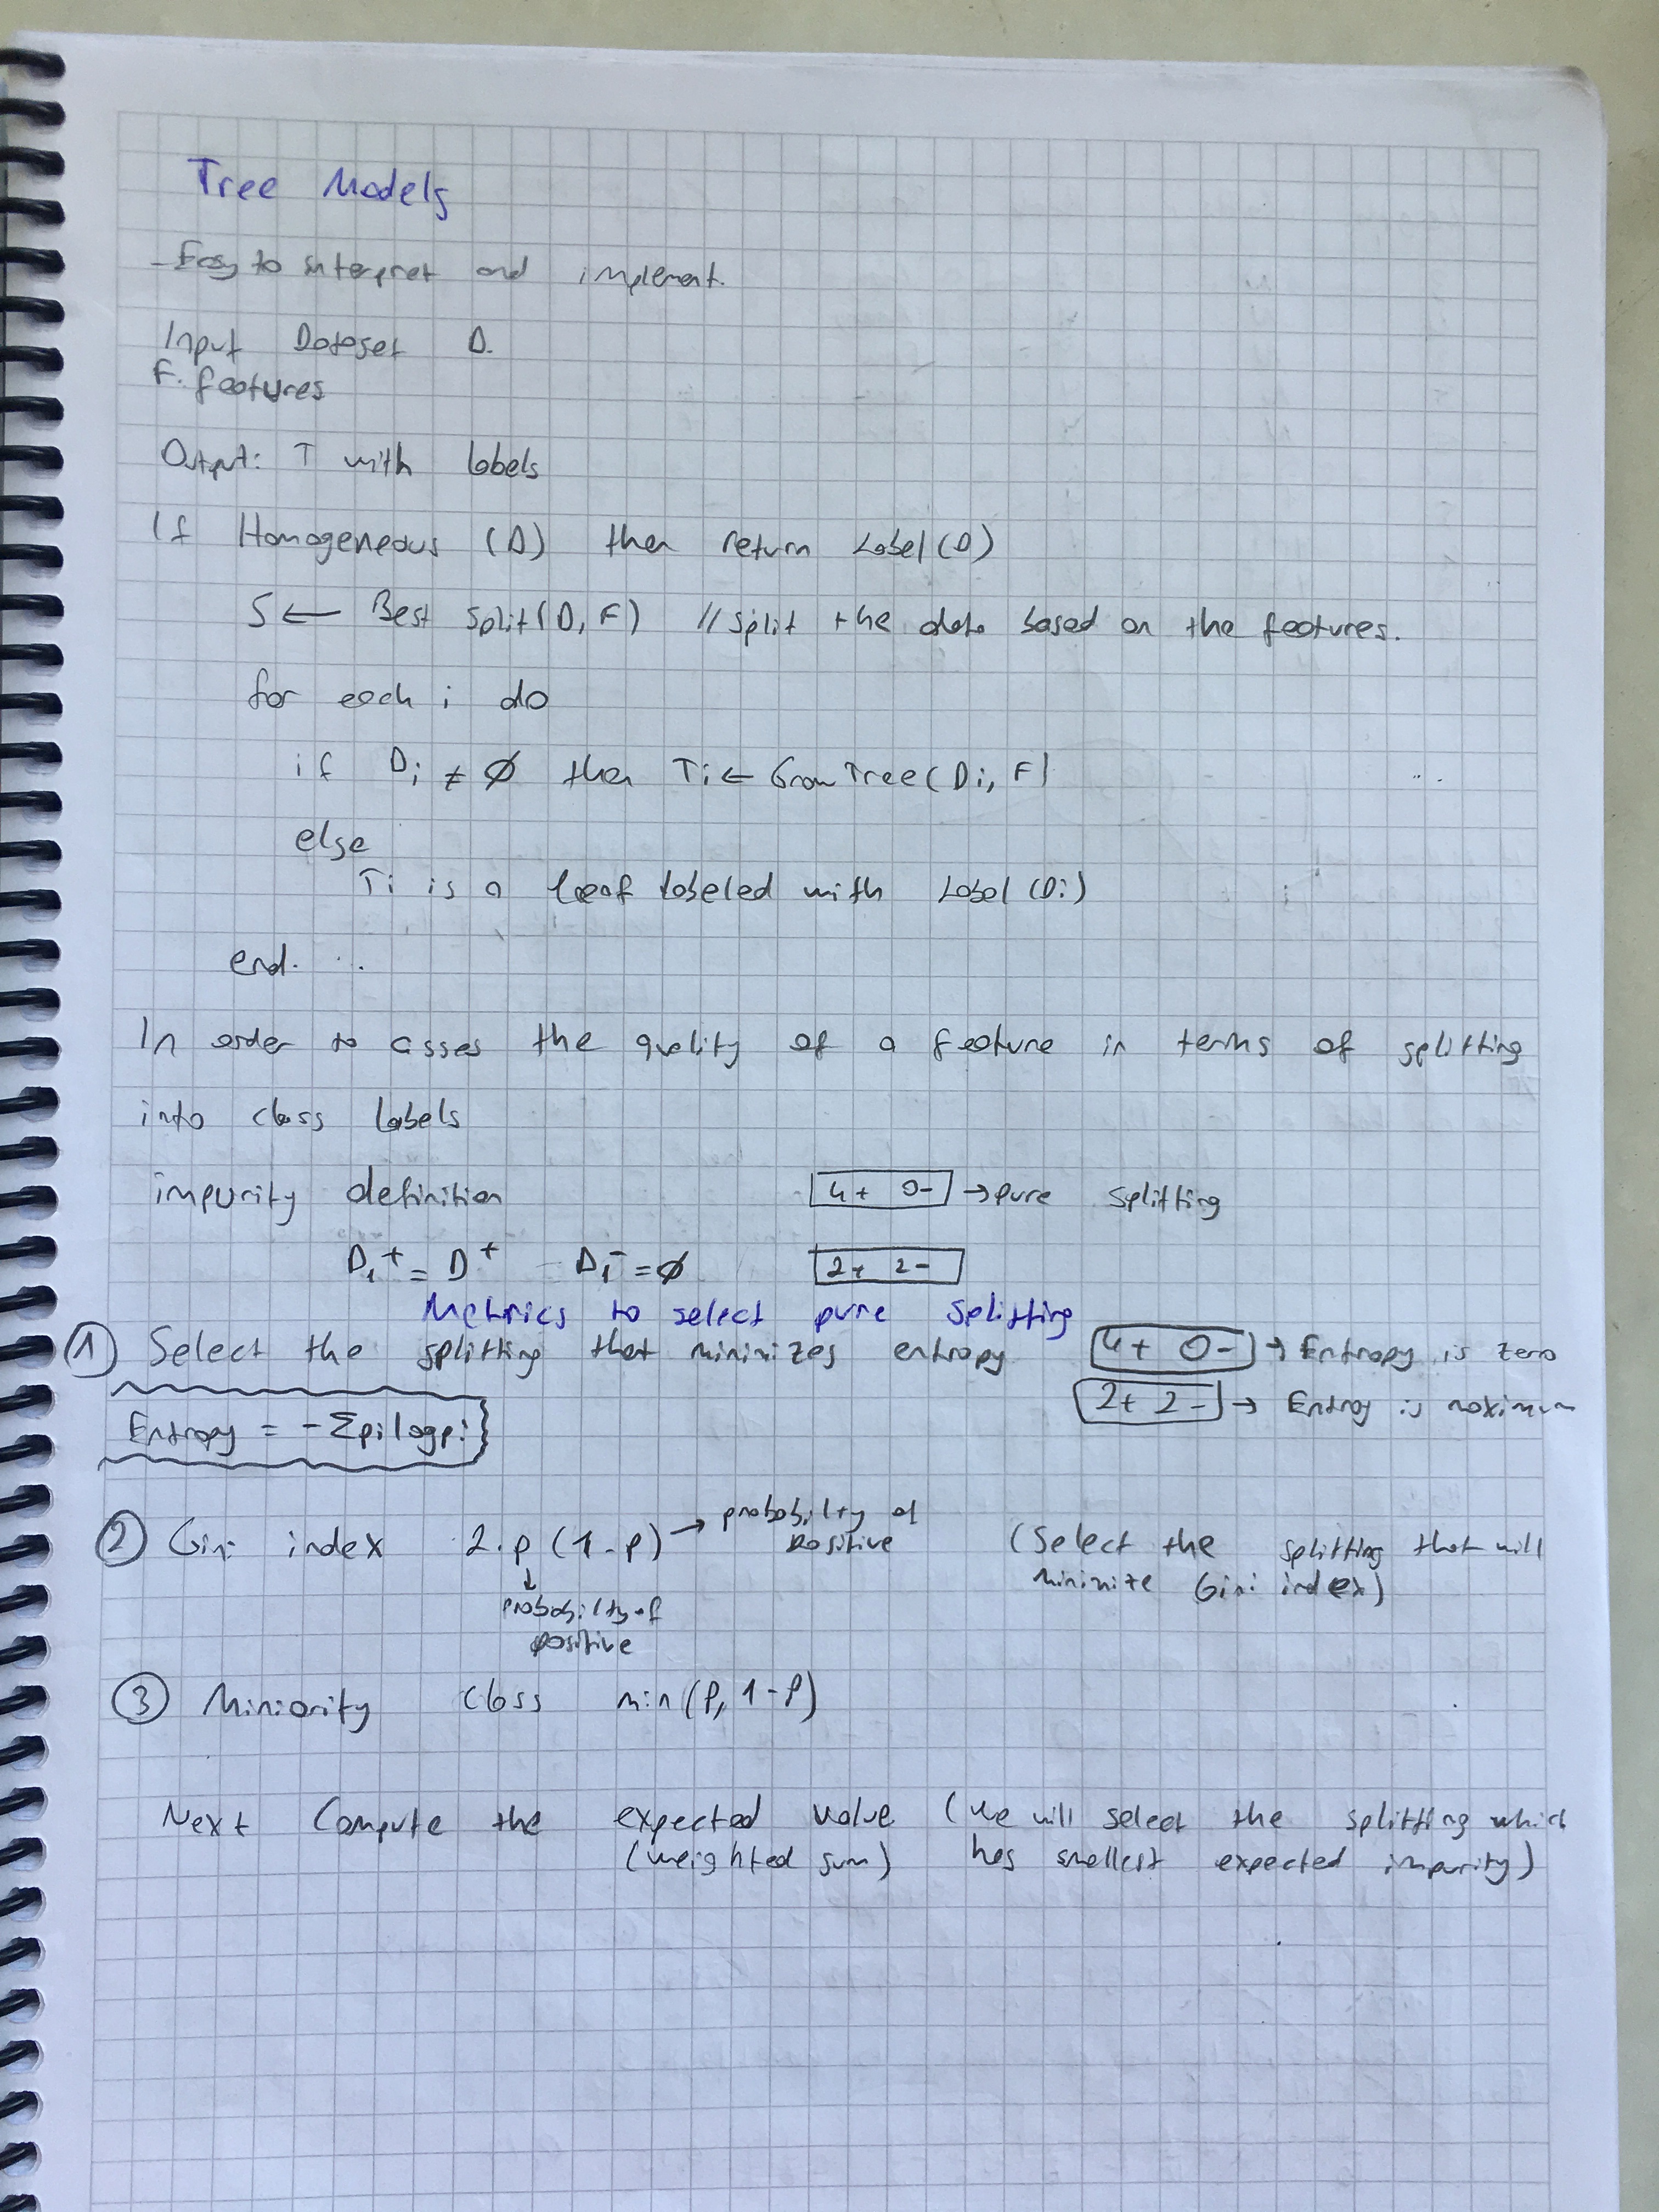 Tree Models
- Easy to interpret and implement.
Input Dataset D.
F. features
Output: T with labels
If Homogeneous (D) then return Label(D)
S ← Best Split(D, F) // split the data based on the features.
for each i do
if Di ≠ ∅ then Ti ← GrowTree(Di, F)
else
Ti is a leaf labeled with Label(Di)
end.
In order to asses the quality of a feature in terms of splitting
into class labels
impurity definition 4+ 0- → pure splitting
D1+ = D+ D1- = ∅ 2+ 2-
Metrics to select pure splitting
1 Select the splitting that minimizes entropy 4+ 0- → Entropy is zero
2+ 2- → Entropy is maximum
Entropy = -Σpilogpi
2 Gini index 2.p (1-p) → probability of positive (Select the splitting that will
minimize Gini index)
↓
probability of
positive
3 Miniority class min(p, 1-p)
Next Compute the expected value (we will select the splitting which
(weighted sum) has smallest expected impurity)